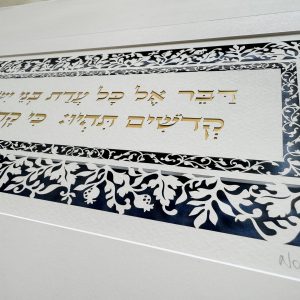 דַּבֵּר אֶל כָּל עֲדַת בְּנֵי
קְדֹשִׁים תִּהְיוּ: כִּי